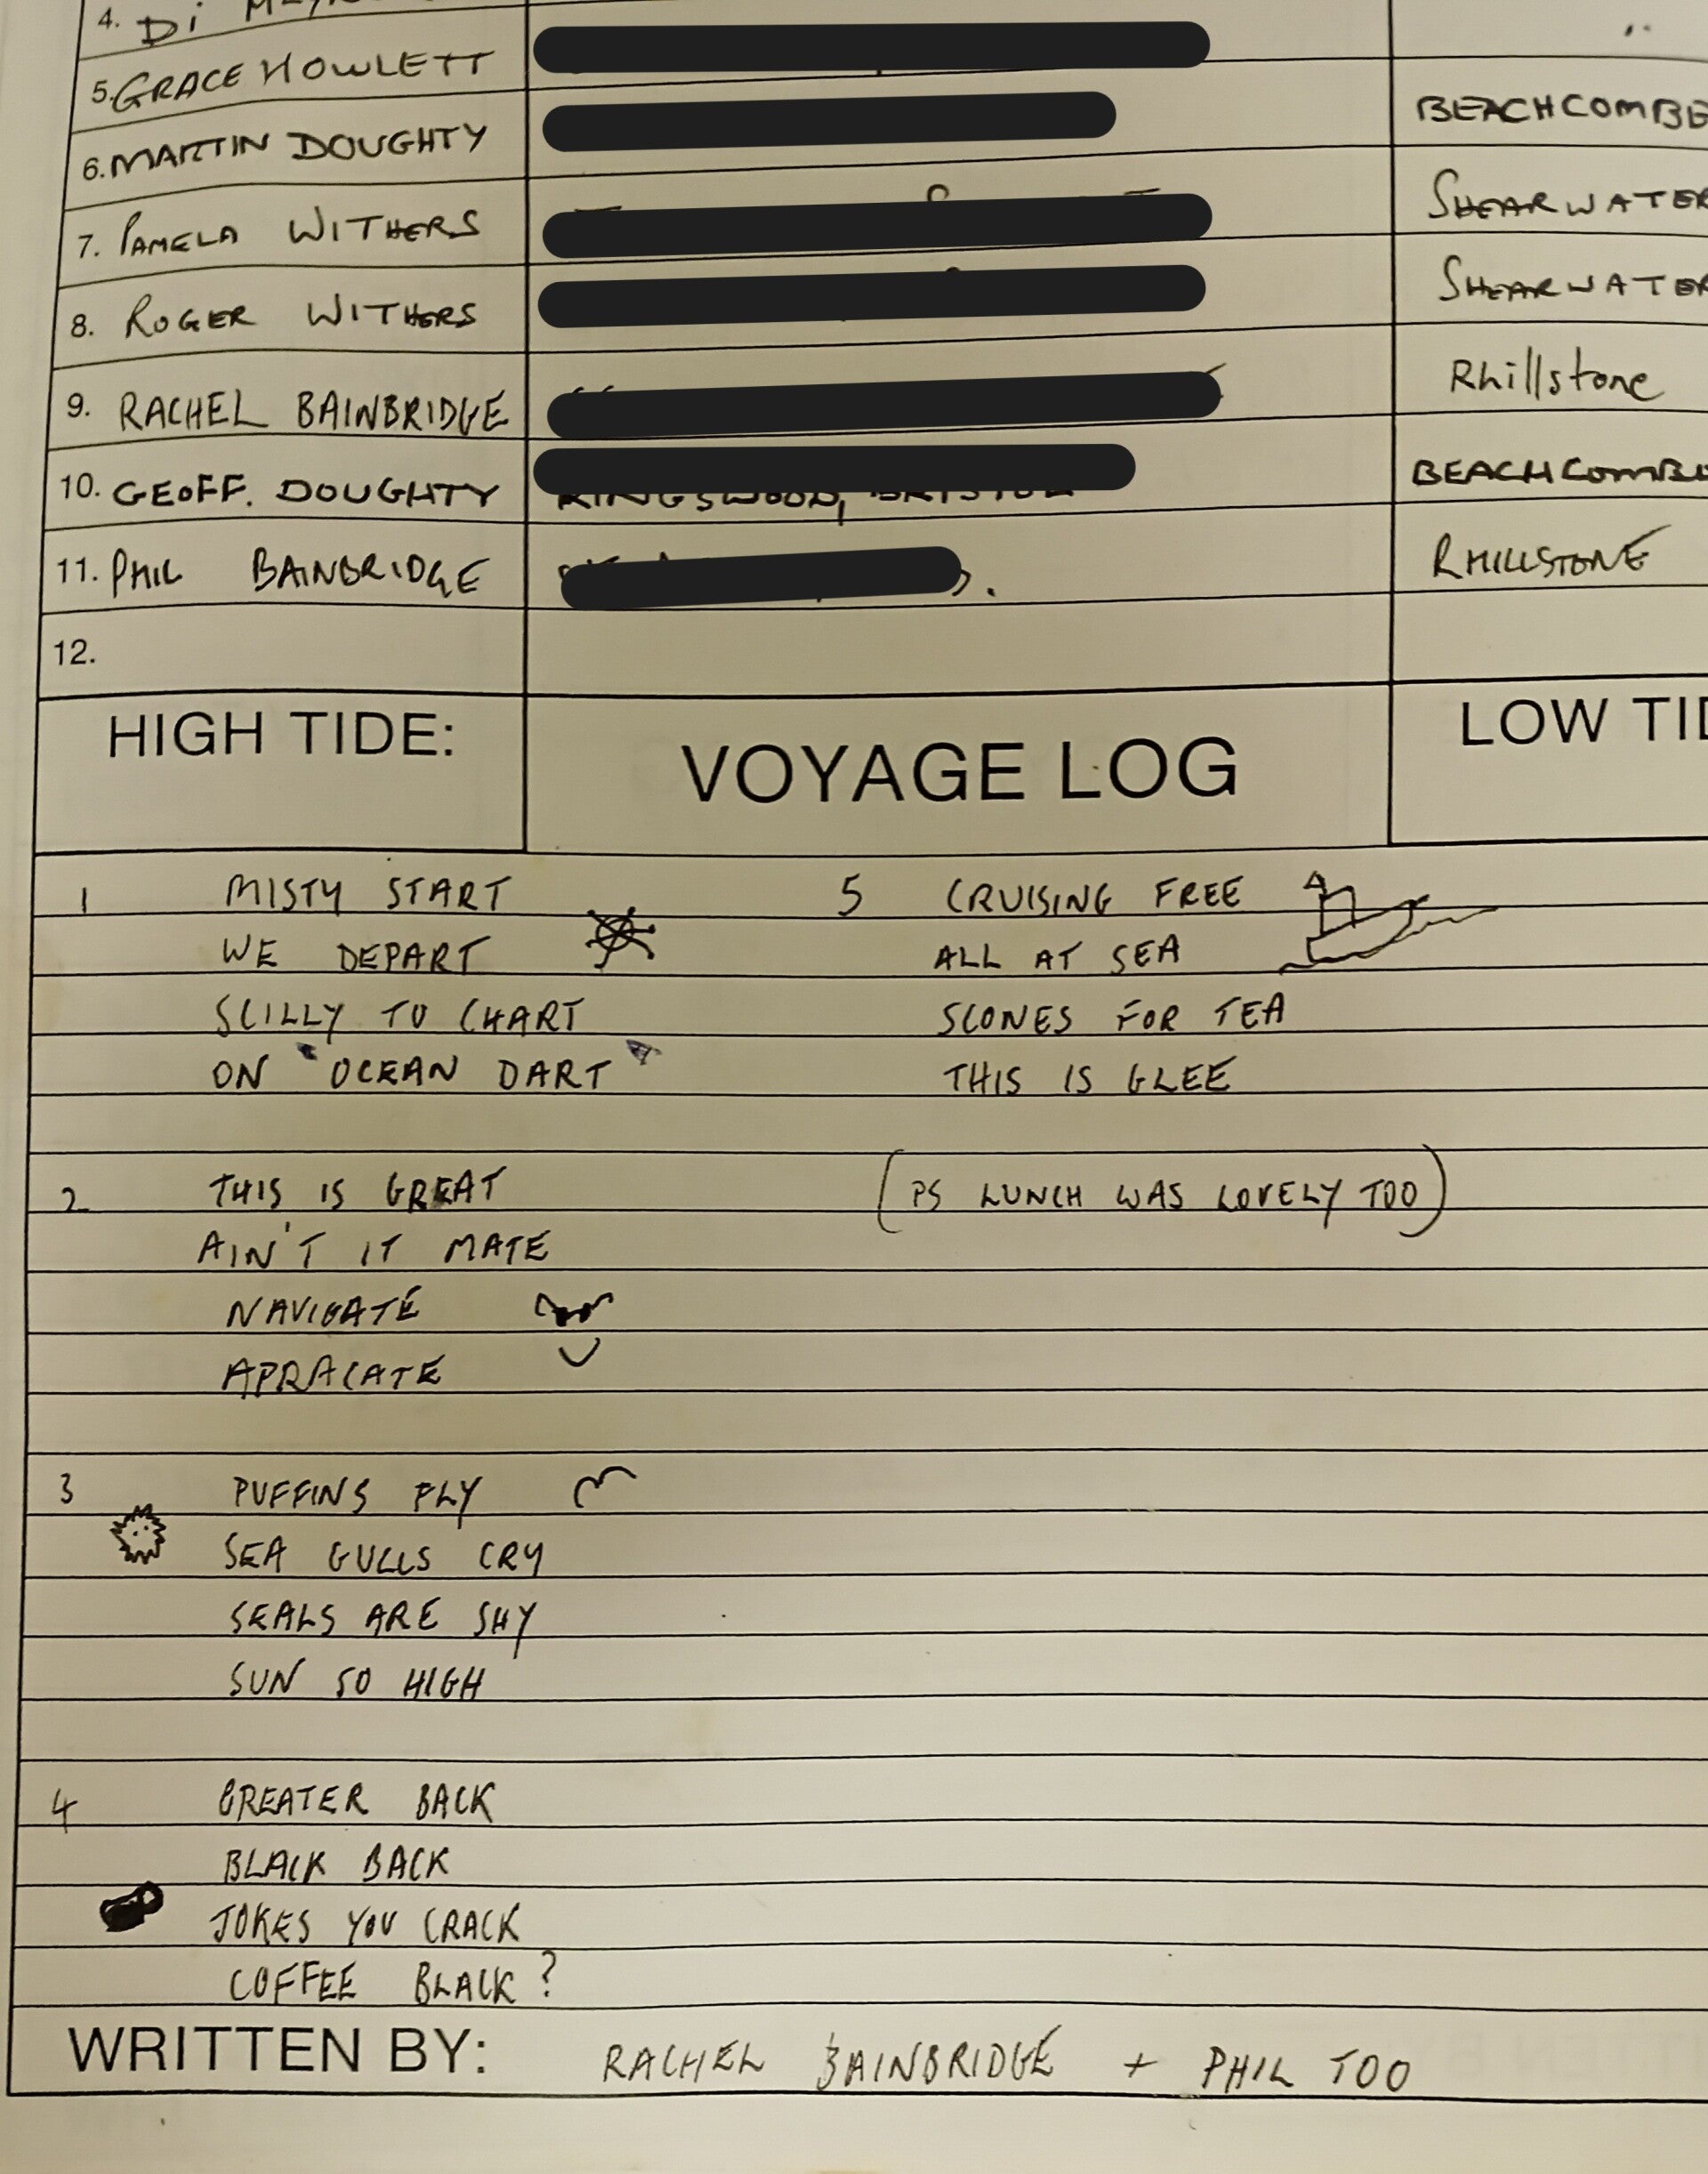 4. Di
5. GRACE HOWLETT
6. MARTIN DOUGHTY BEACHCOMBE
7. PAMELA WITHERS SHEARWATER
8. ROGER WITHERS SHEARWATER
9. RACHEL BAINBRIDGE Rhillstone
10. GEOFF. DOUGHTY BEACHCOMBE
11. PHIL BAINBRIDGE RHILLSTONE
12.
HIGH TIDE: VOYAGE LOG LOW TID
1 MISTY START
WE DEPART
SCILLY TO CHART
ON "OCEAN DART"
2 THIS IS GREAT
AIN'T IT MATE
NAVIGATE
APRACATE
3 PUFFINS FLY
SEA GULLS CRY
SEALS ARE SHY
SUN SO HIGH
4 GREATER BACK
BLACK BACK
JOKES YOU CRACK
COFFEE BLACK?
5 CRUISING FREE
ALL AT SEA
SCONES FOR TEA
THIS IS GLEE
(PS LUNCH WAS LOVELY TOO)
WRITTEN BY: RACHEL BAINBRIDGE + PHIL TOO